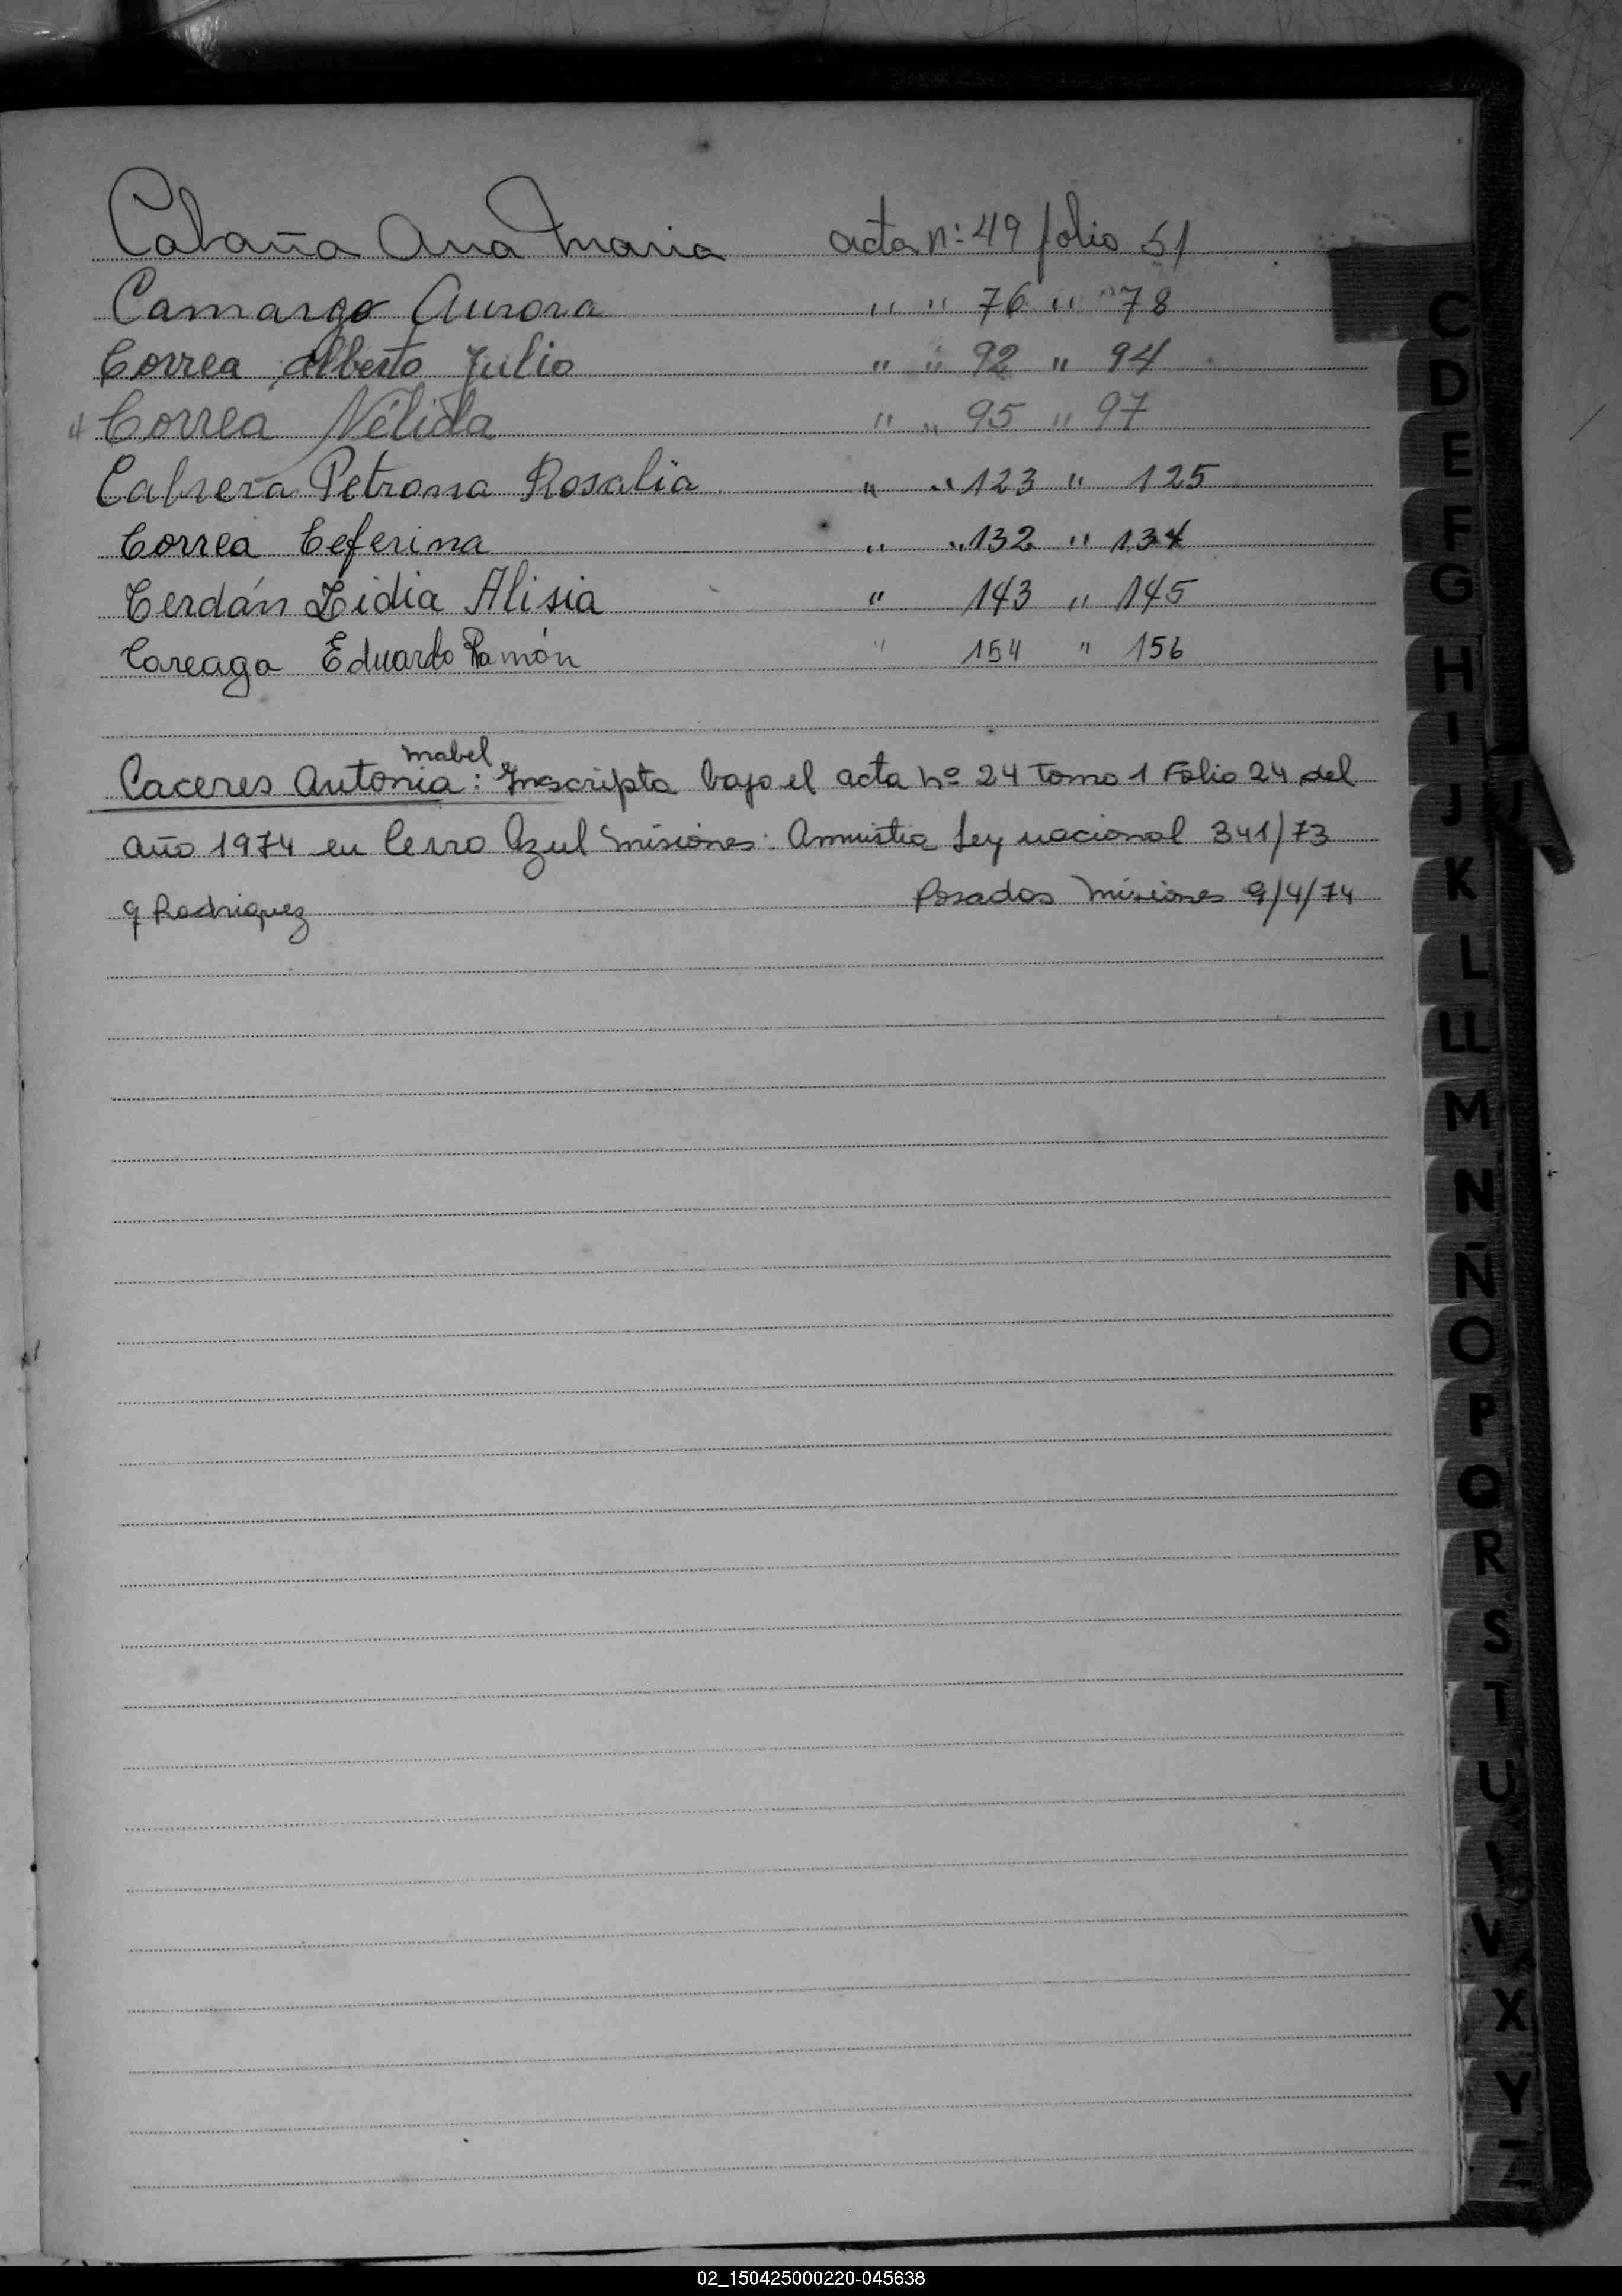 Cabaña Ana Maria acta n: 49 folio 51
Camargo Aurora " " 76 " " 78
Correa Alberto Julio " " 92 " 94
Correa Nélida " " 95 " 97
Cabrera Petrona Rosalia " " 123 " 125
Correa Ceferina " " 132 " 134
Cerdán Lidia Alisia " 143 " 145
Careaga Eduardo Ramón " 154 " 156
mabel
Caceres Antonia: Inscripta bajo el acta nº 24 Tomo 1 Folio 24 del
año 1974 en Cerro Azul misiones: Amnistia Ley nacional 341/73
Posadas Misiones 9/4/74
g Rodriguez
C
D
E
F
G
H
I
J
K
L
LL
M
N
Ñ
O
P
Q
R
S
T
U
V
X
Y
Z
02_150425000220-045638